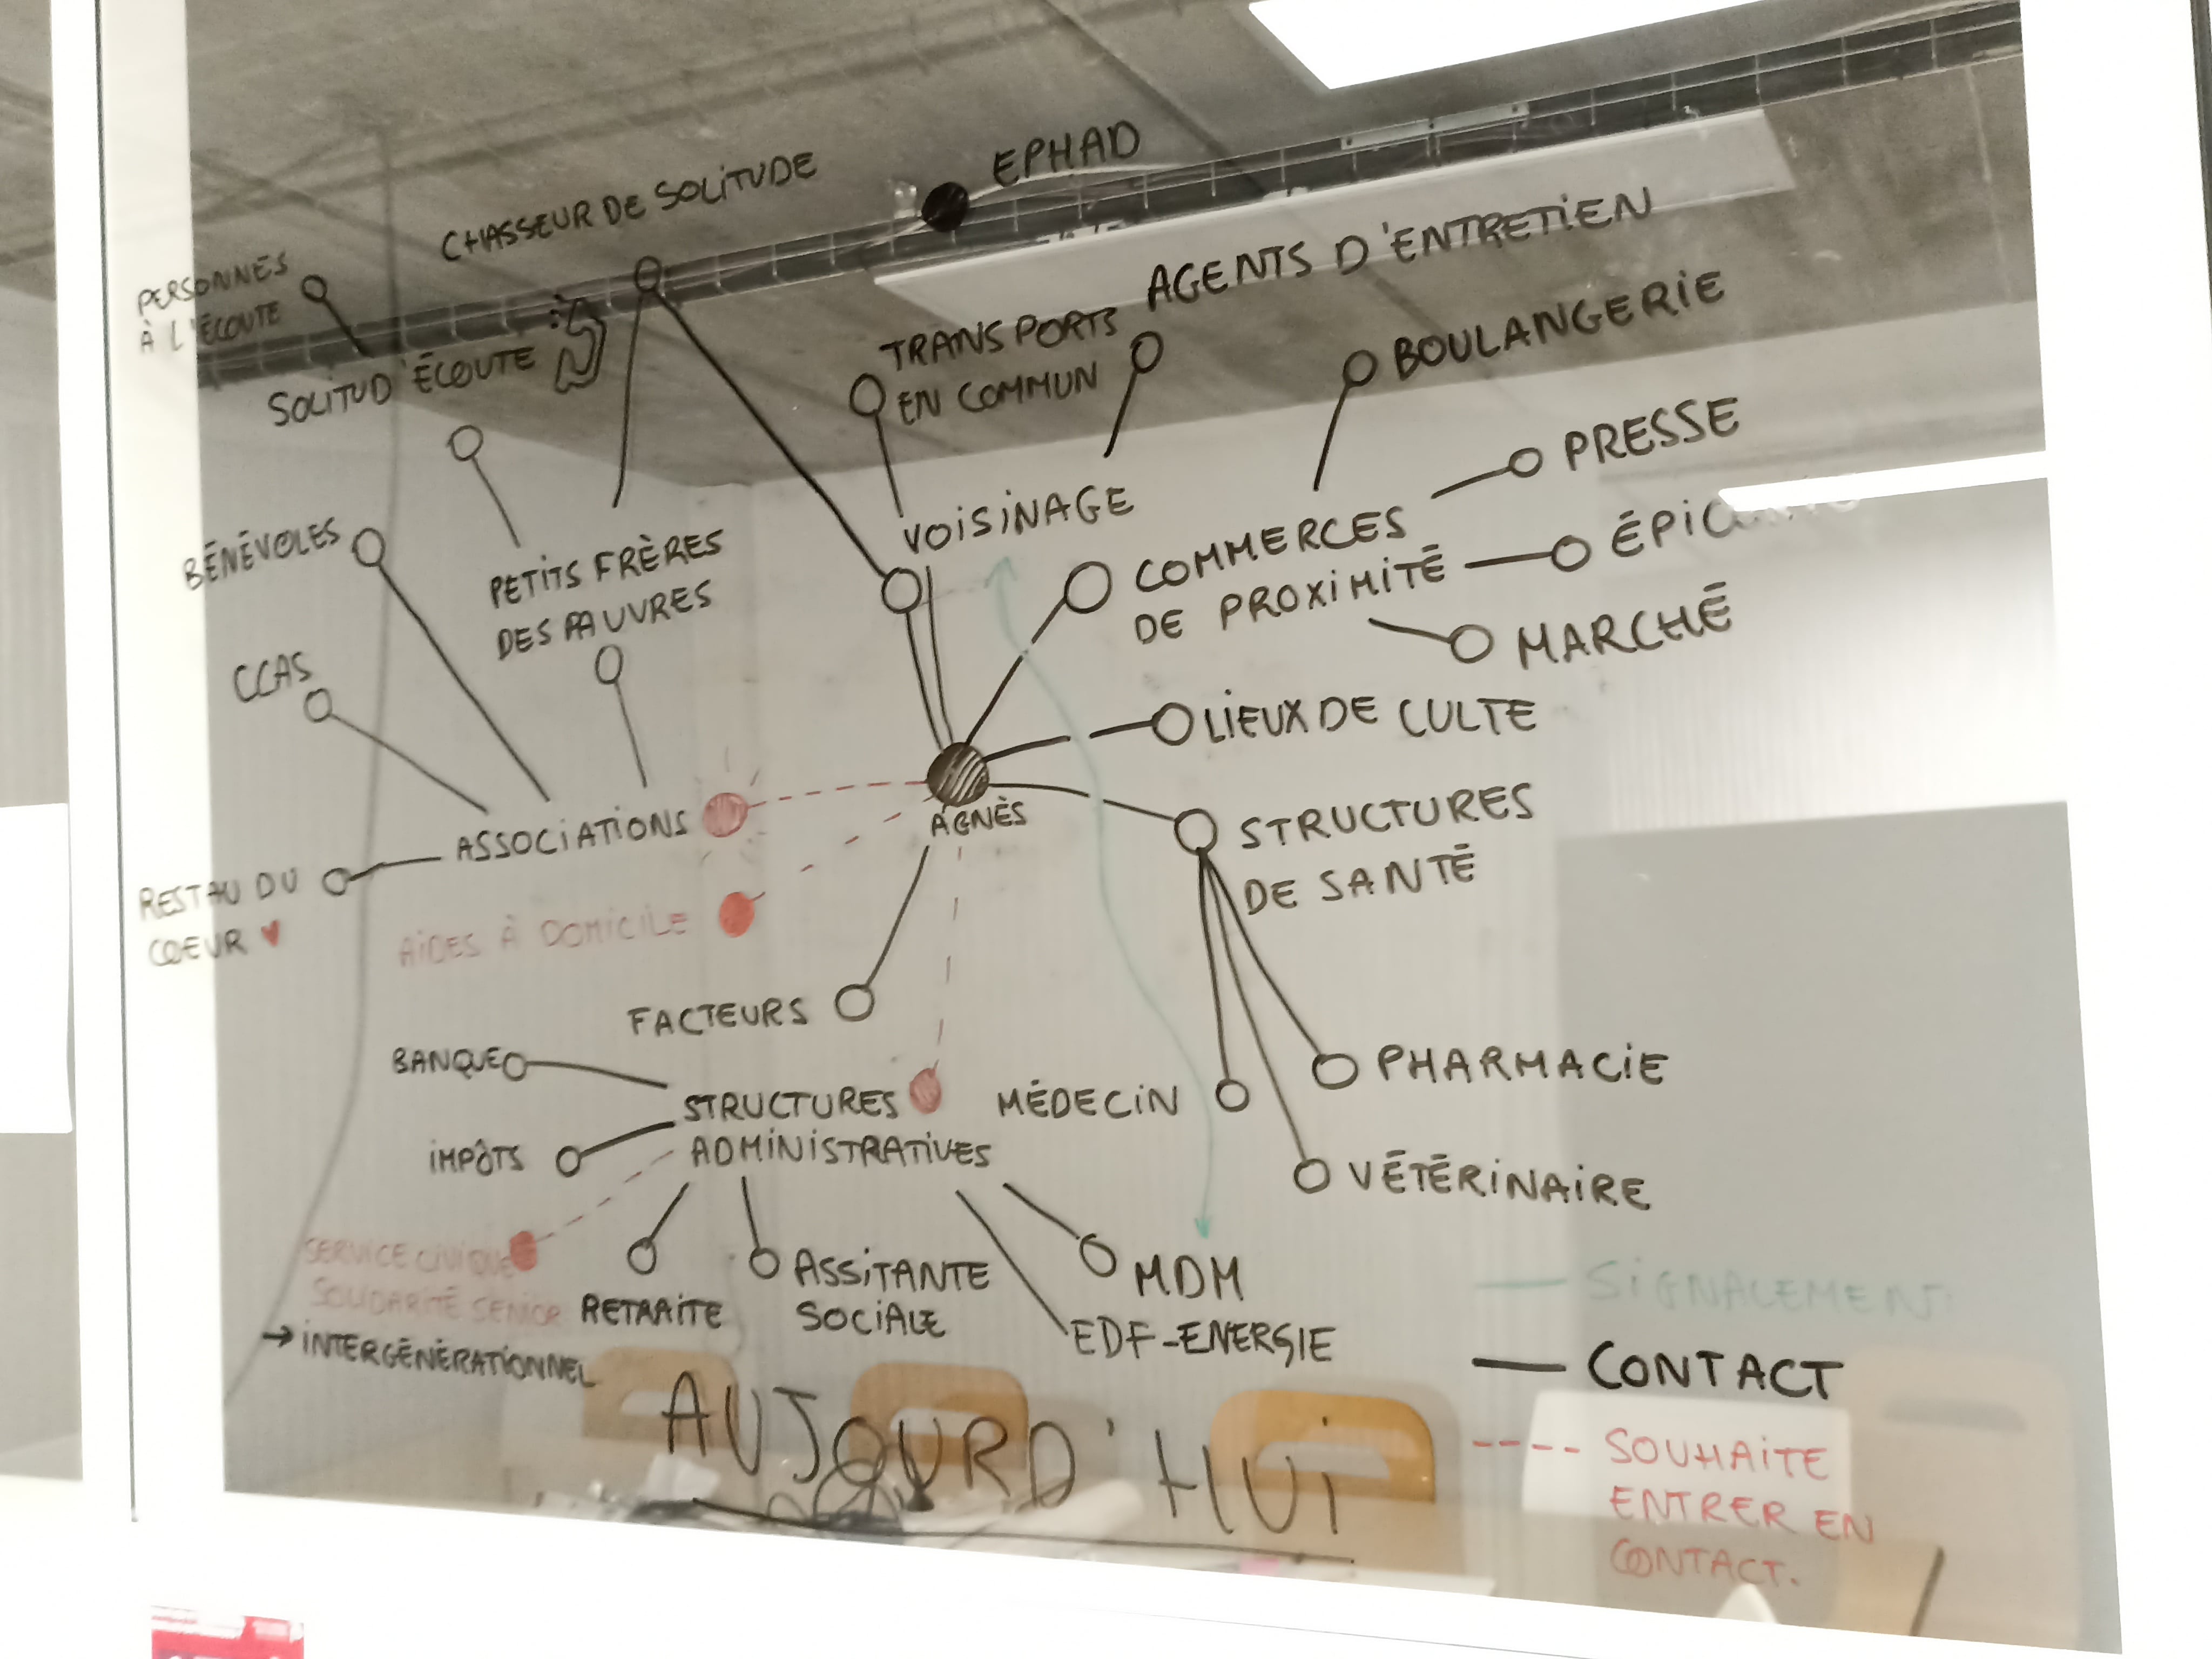 EPHAD
CHASSEUR DE SOLITUDE
AGENTS D'ENTRETIEN
PERSONNES
À L'ÉCOUTE
SOLITUD'ÉCOUTE
TRANSPORTS
EN COMMUN
BOULANGERIE
PRESSE
VOISINAGE
BÉNÉVOLES
PETITS FRÈRES
DES PAUVRES
COMMERCES
DE PROXIMITÉ
MARCHÉ
CCAS
LIEUX DE CULTE
ASSOCIATIONS
AGNÈS
STRUCTURES
DE SANTÉ
RESTAU DU
COEUR ♥
AIDES À DOMICILE
FACTEURS
BANQUE
STRUCTURES
ADMINISTRATIVES
MÉDECIN
PHARMACIE
IMPÔTS
VÉTÉRINAIRE
SERVICE CIVIQUE
SOLIDARITÉ SENIOR
→ INTERGÉNÉRATIONNEL
RETRAITE
ASSITANTE
SOCIALE
MDM
EDF-ENERGIE
SIGNALEMENT
CONTACT
SOUHAITE
ENTRER EN
CONTACT.
AUJOURD'HUI